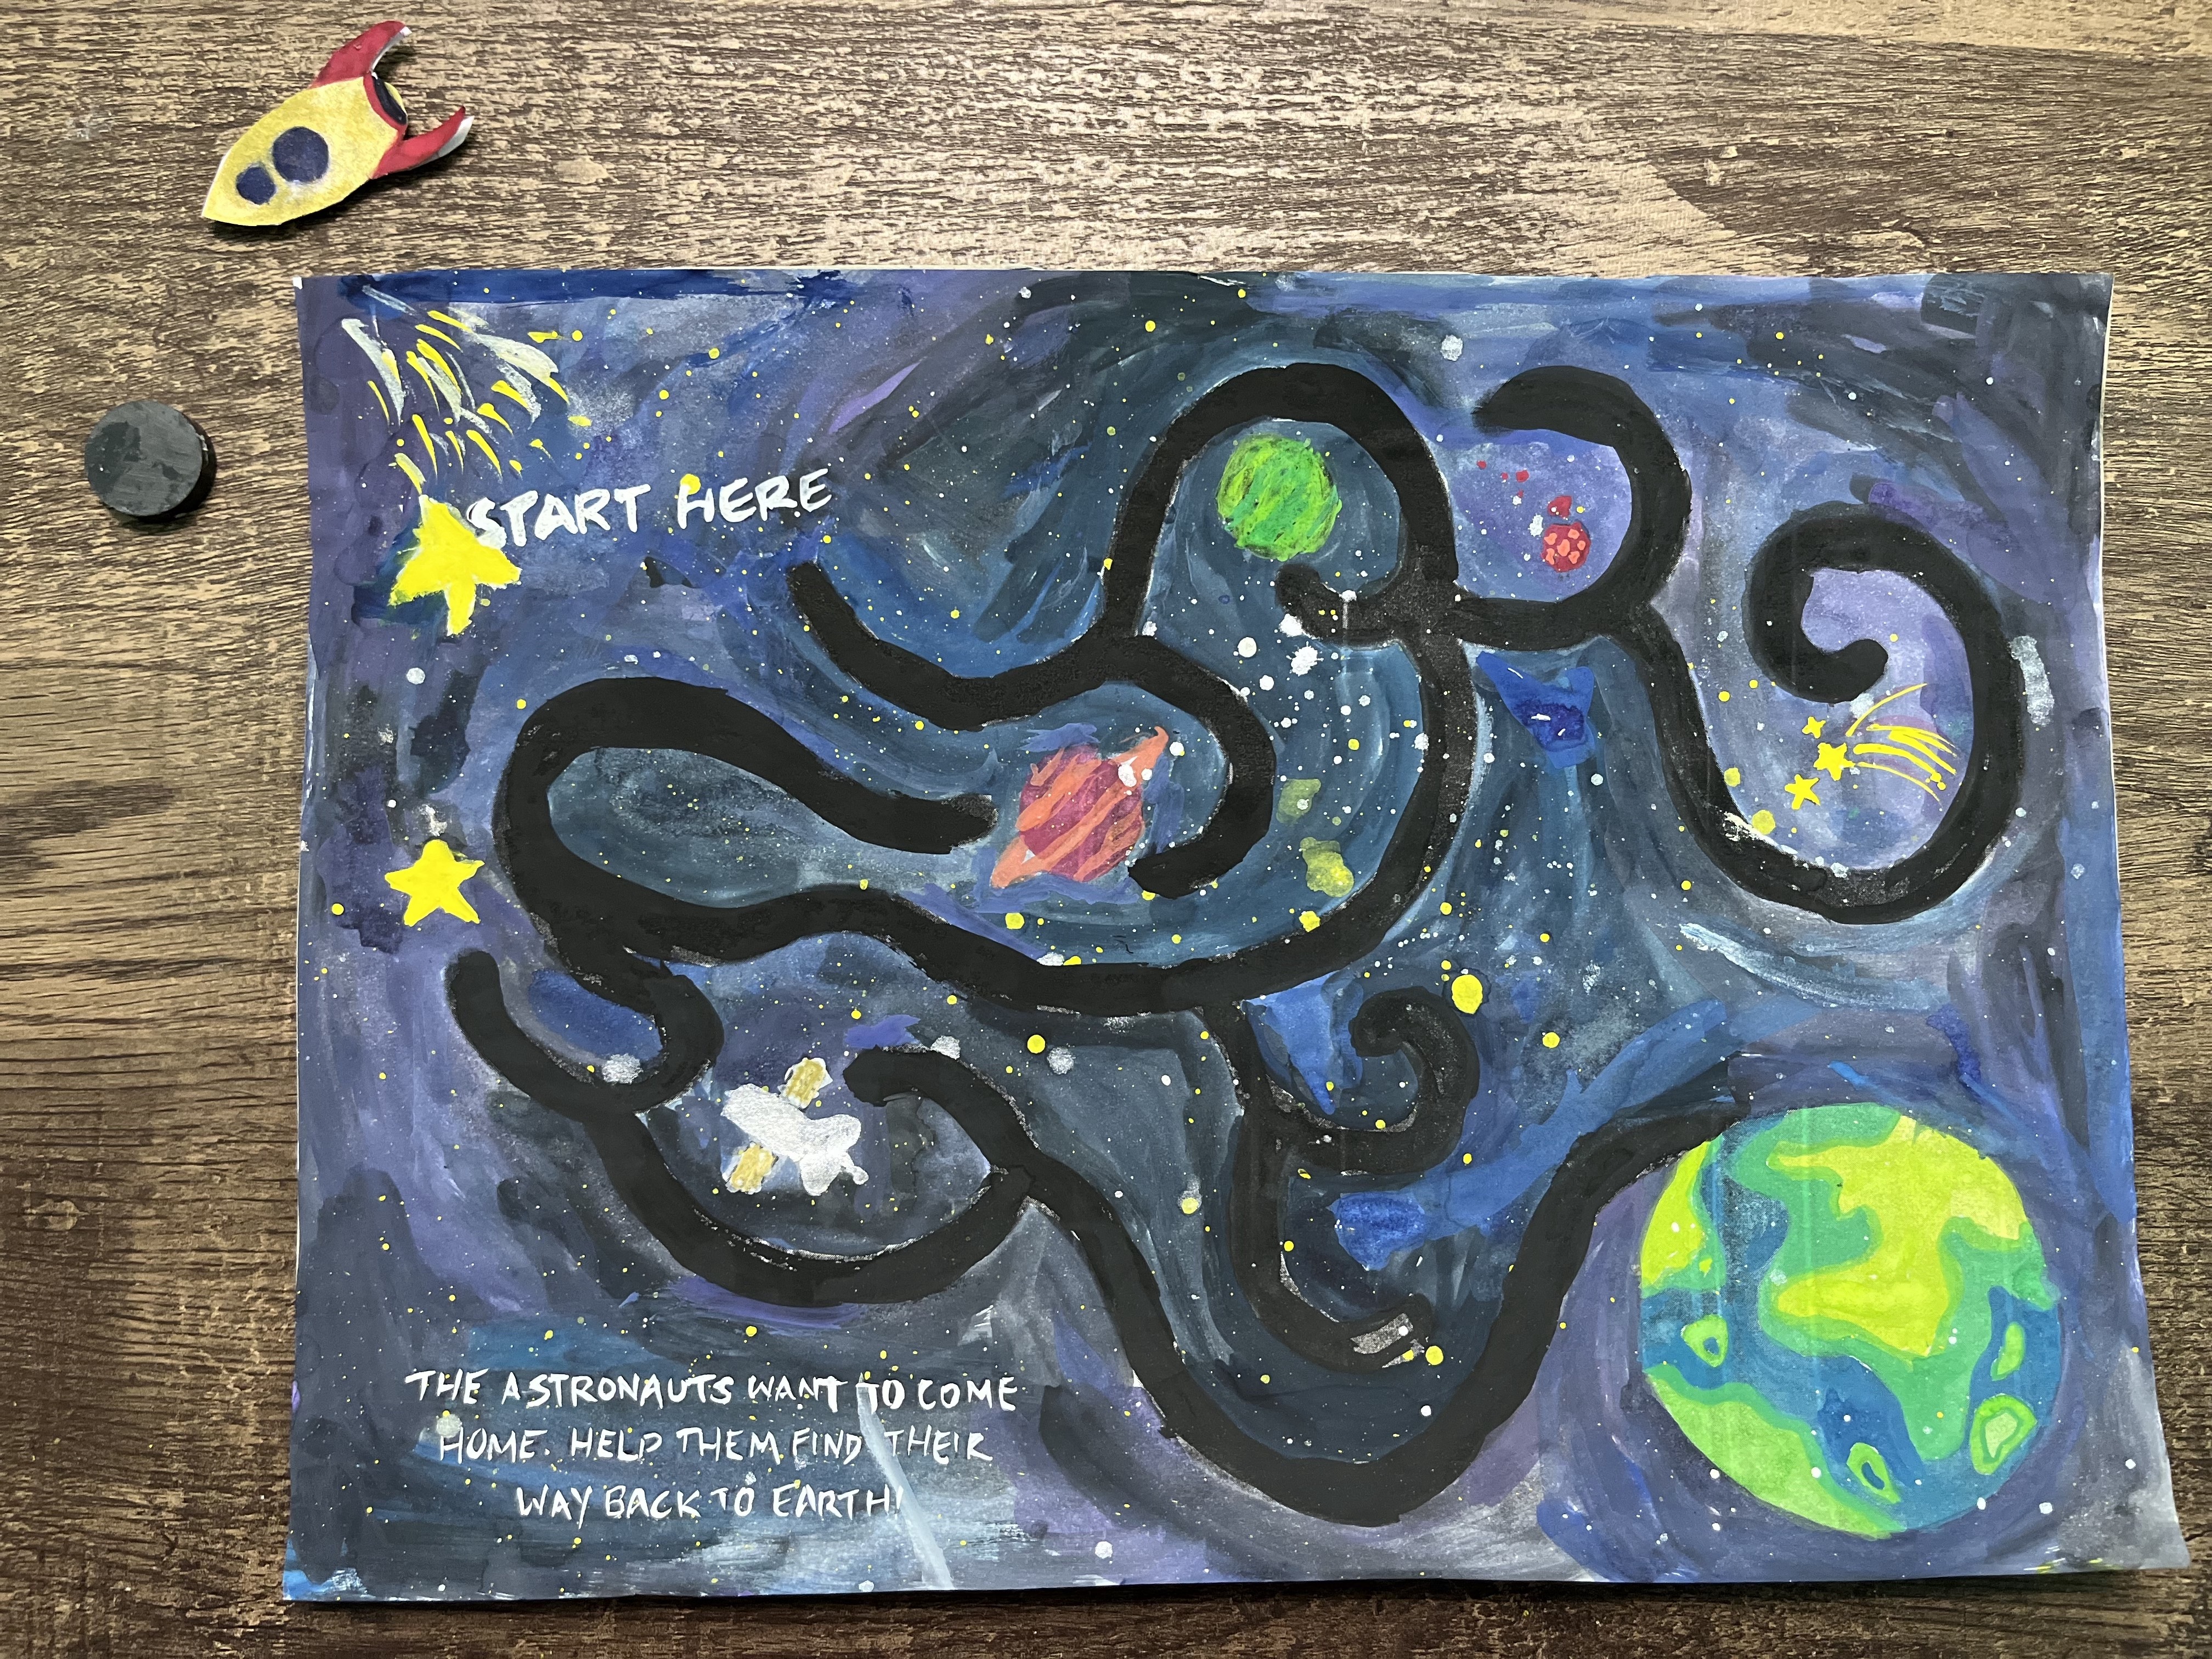 START HERE
THE ASTRONAUTS WANT TO COME
HOME. HELP THEM FIND THEIR
WAY BACK TO EARTH!